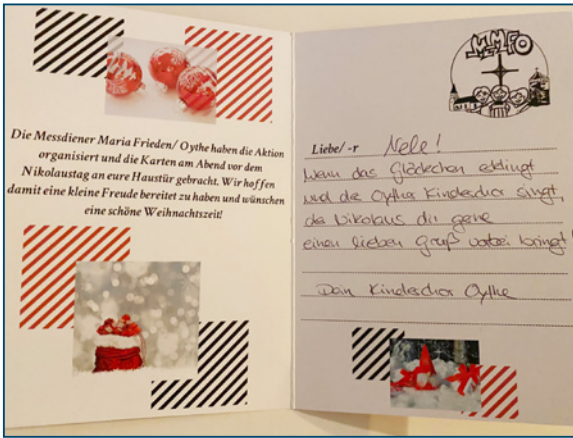 Die Messdiener Maria Frieden/ Oythe haben die Aktion
organisiert und die Karten am Abend vor dem
Nikolaustag an eure Haustür gebracht. Wir hoffen
damit eine kleine Freude bereitet zu haben und wünschen
eine schöne Weihnachtszeit!
MMFO
Liebe/ -r Nele!
Wenn das Glöckchen erklingt
und die Oyther Kinderchor singt,
der Nikolaus dir gerne
einen lieben Gruß vorbei bringt!
Dein Kinderchor Oythe